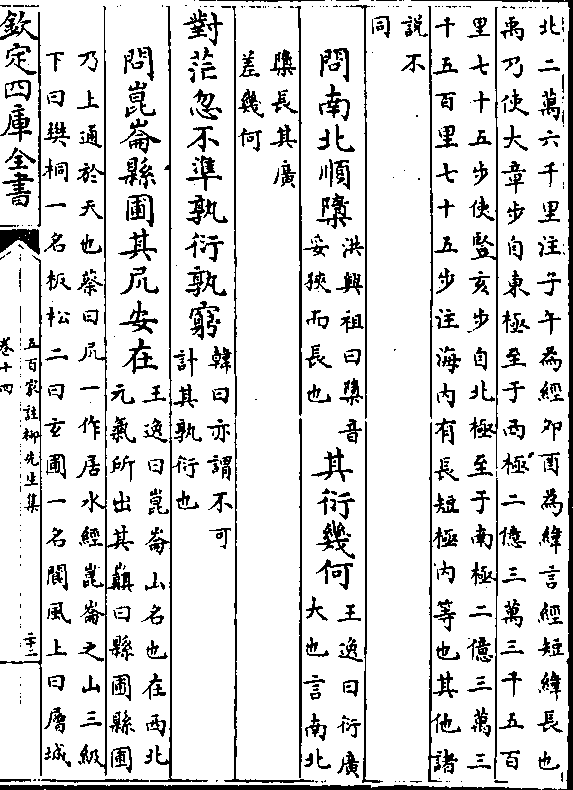 北二萬六千里注子午為經夘酉為緯言經短緯長也
禹乃使大章步自東極至于西極二億三萬三千五百
里七十五步使竪亥步自北極至于南極二億三萬三
千五百里七十五步注海内有長短極内等也其他諸
說不
同
問南北順橢
洪興祖曰橢音
妥狹而長也
其衍幾何
王逸曰衍廣
大也言南北
橢長其廣
差幾何
對茫忽不準孰衍孰窮
韓曰亦謂不可
計其孰衍也
問崑崙縣圃其凥安在
王逸曰崑崙山名也在西北
元氣所出其巔曰縣圃縣圃
乃上通於天也蔡曰凥一作居水經崑崙之山三級
下曰樊桐一名板松二曰玄圃一名閬風上曰層城
欽定四庫全書
五百家註柳先生集
卷十四